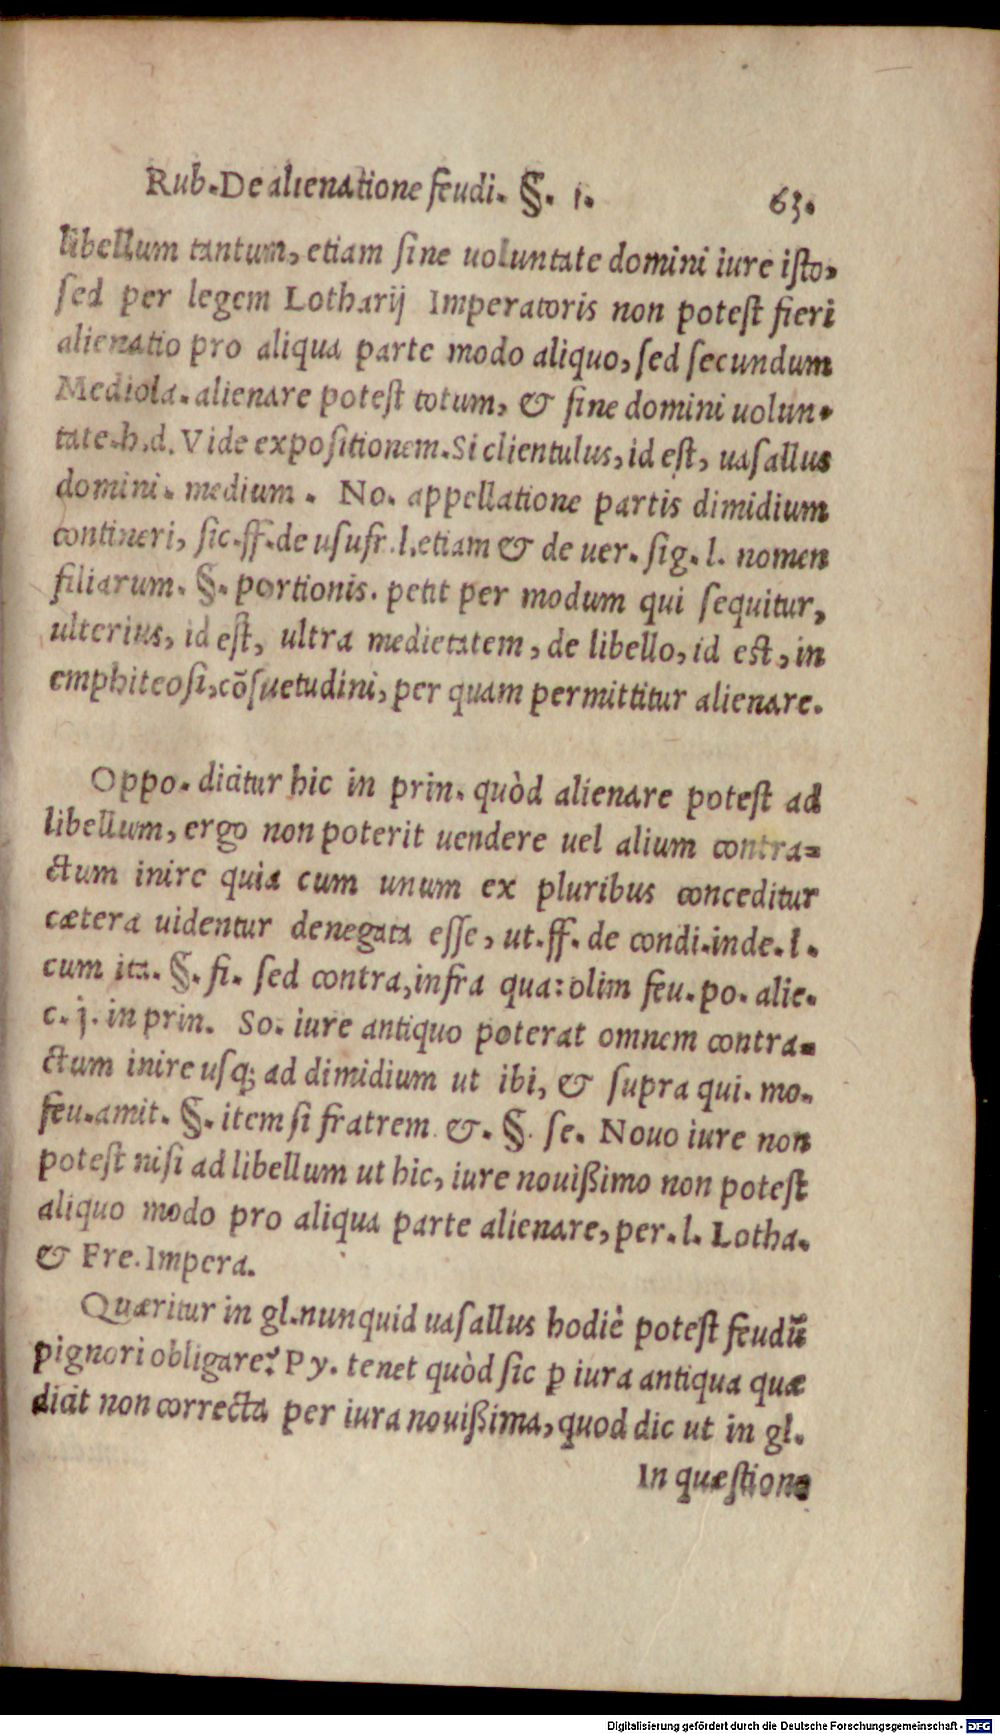 Rub. De alienatione feudi. §. 1. 63.
libellum tantum, etiam ſine uoluntate domini iure iſto,
ſed per legem Lotharij Imperatoris non poteſt fieri
alienatio pro aliqua parte modo aliquo, ſed ſecundum
Mediola. alienare poteſt totum, & ſine domini uolun-
tate. h. d. Vide expoſitionem. Si clientulus, id eſt, uaſallus
domini. medium. No. appellatione partis dimidium
contineri, ſic. ff. de uſufr. l. etiam & de uer. ſig. l. nomen
filiarum. §. portionis. petit per modum qui ſequitur,
ulterius, id eſt, ultra medietatem, de libello, id eſt, in
emphiteoſi, cõſuetudini, per quam permittitur alienare.
Oppo. dicitur hic in prin. quòd alienare poteſt ad
libellum, ergo non poterit uendere uel alium contra-
ctum inire quia cum unum ex pluribus conceditur
cætera uidentur denegata eſſe, ut. ff. de condi. inde. l.
cum ita. §. fi. ſed contra, infra qua: olim feu. po. alie.
c. j. in prin. So. iure antiquo poterat omnem contra-
ctum inire uſq; ad dimidium ut ibi, & ſupra qui. mo.
feu. amit. §. item ſi fratrem &. §. ſe. Nouo iure non
poteſt niſi ad libellum ut hic, iure nouißimo non poteſt
aliquo modo pro aliqua parte alienare, per. l. Lotha.
& Fre. Impera.
Quæritur in gl. nunquid uaſallus hodiè poteſt feudũ
pignori obligare? Py. tenet quòd ſic ꝑ iura antiqua quæ
dicit non correcta per iura nouißima, quod dic ut in gl.
In quæſtione
Digitalisierung gefördert durch die Deutsche Forschungsgemeinschaft - DFG